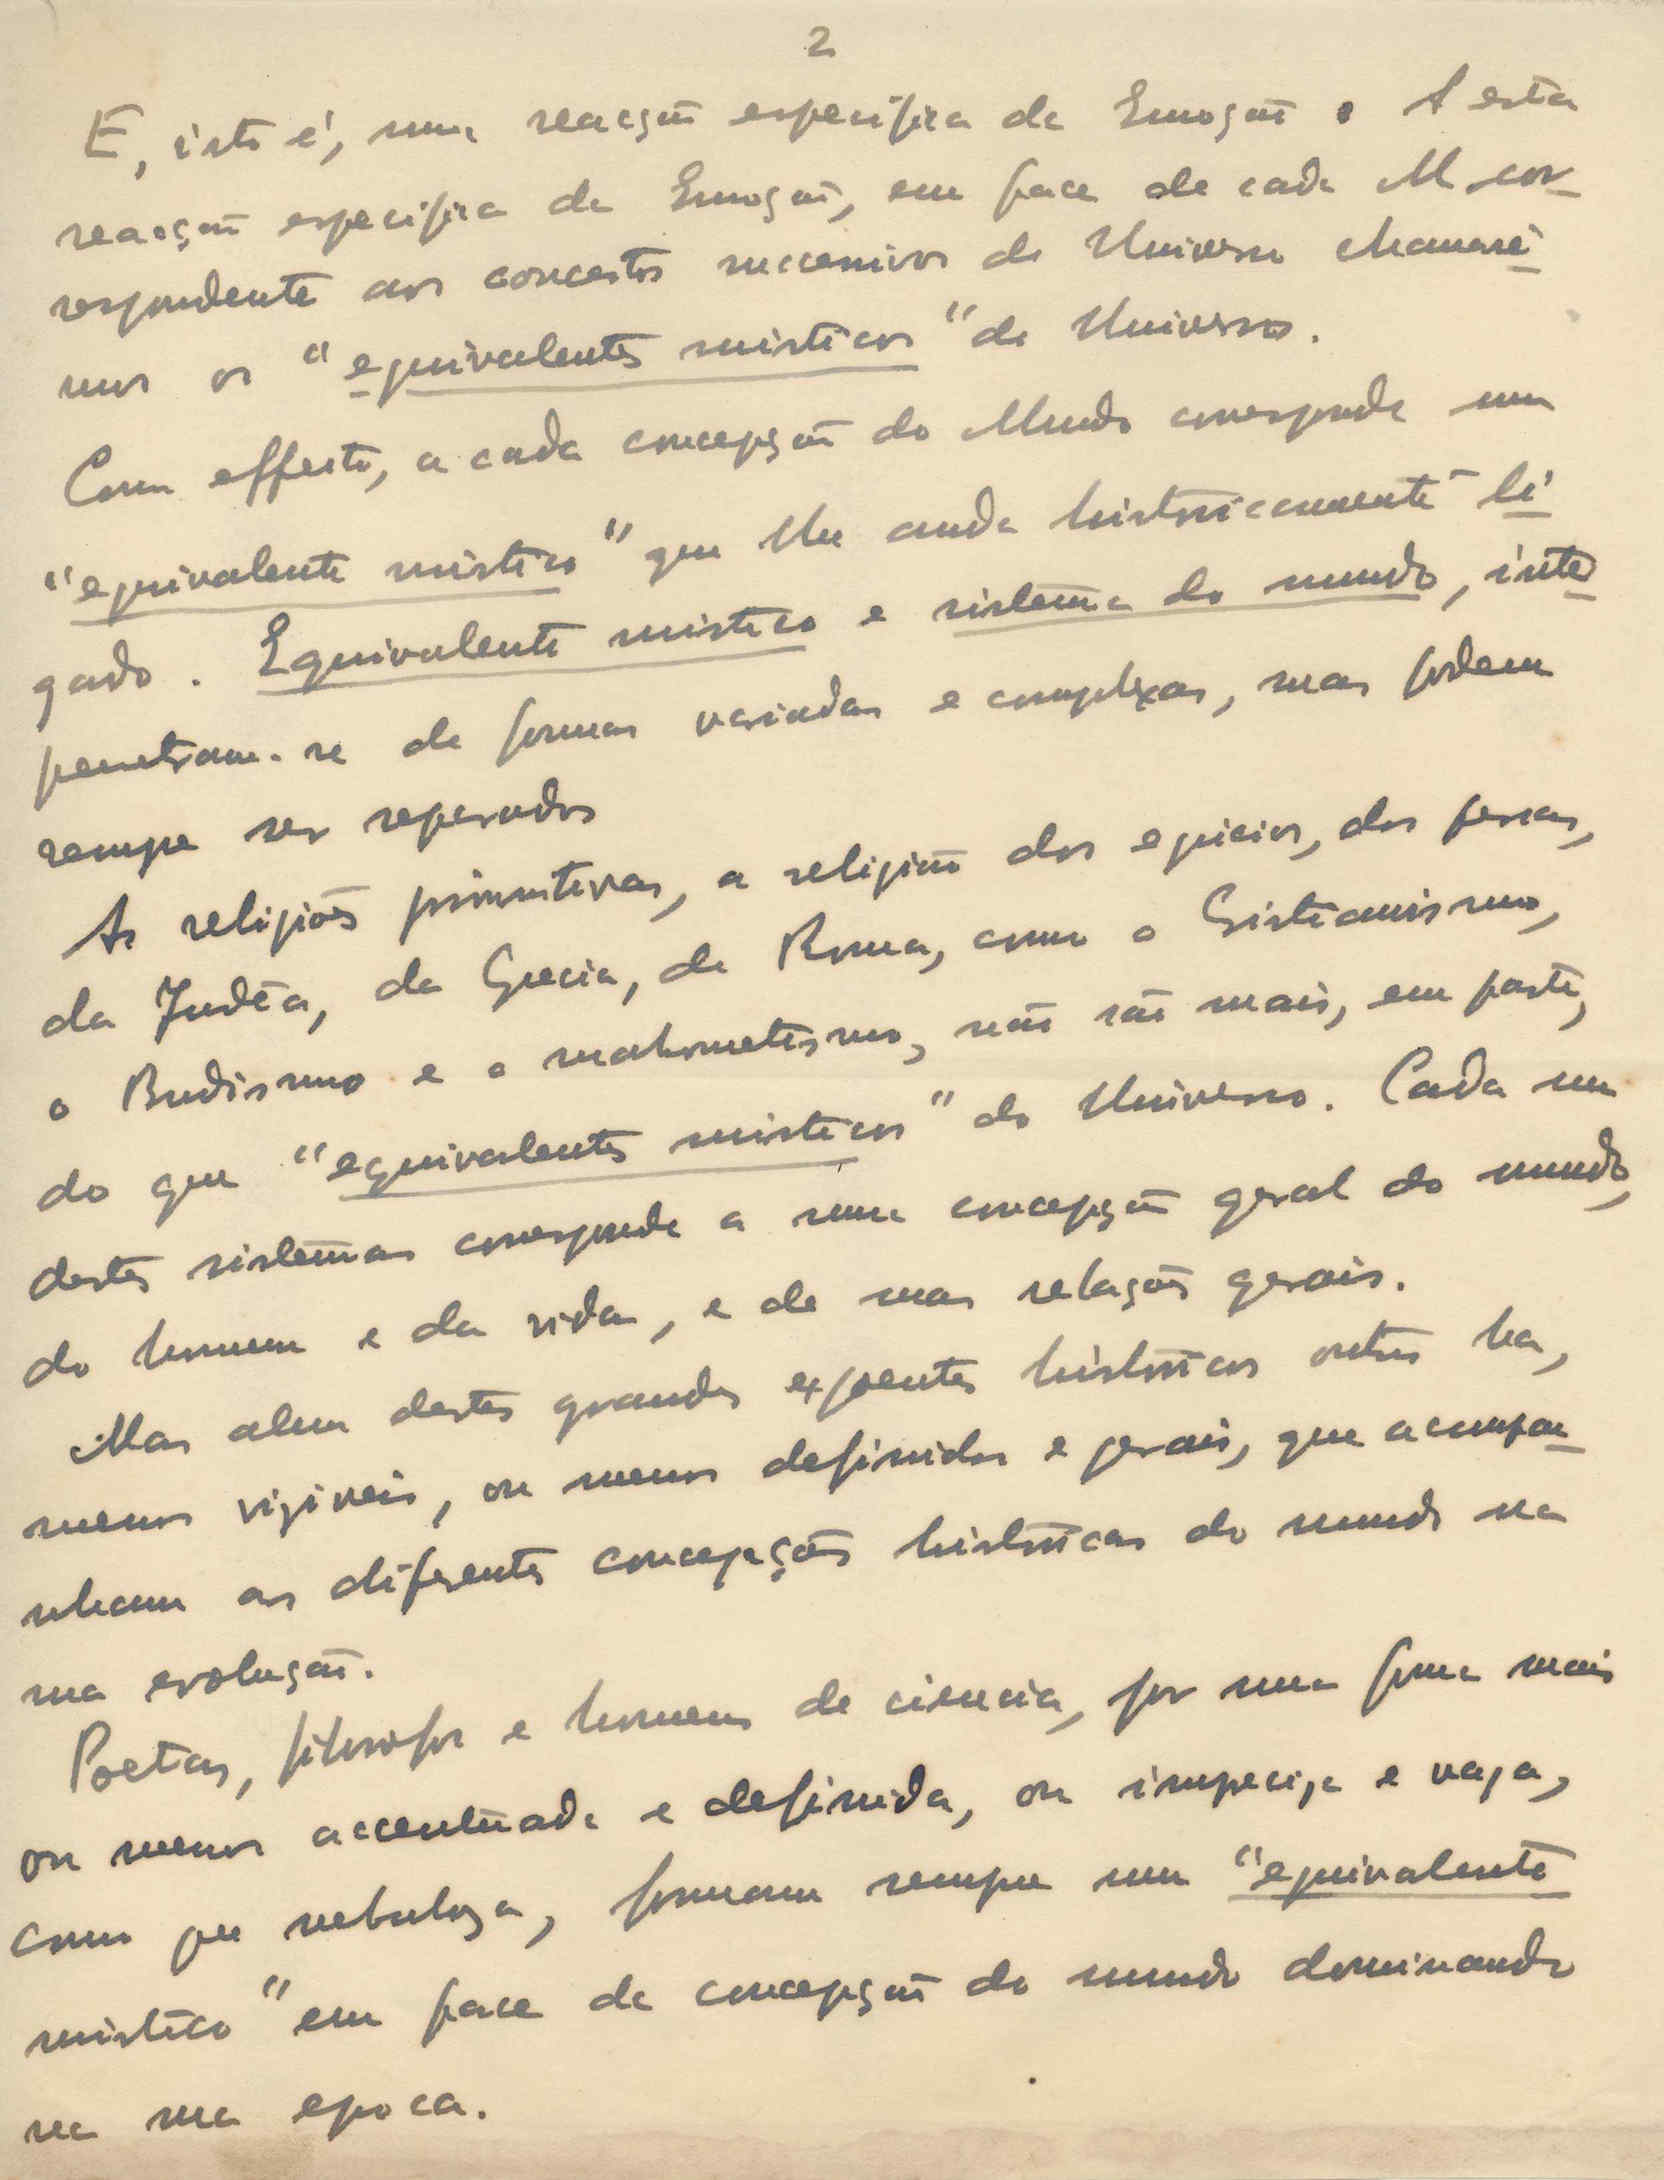 2
E, isto é, uma reacção especifica da Emoção. A esta
reacção especifica da Emoção, em face de cada M cor-
respondente aos conceitos successivos do Universo chamaré-
mos os "equivalentes misticos" do Universo.
Com effeito, a cada concepção do Mundo corresponde um
"equivalente mistico" que lhe anda historicamente li-
gado. Equivalente mistico e sistema do mundo, inter-
penetram-se de formas variadas e complexas, mas podem
sempre ser separados
As religiões primitivas, a religião dos egicios, dos persas,
da Judêa, da Grecia, de Roma, como o Cristianismo,
o Budismo e o mahometismo, não são mais, em parte,
do que "equivalentes misticos" do Universo. Cada um
destes sistemas corresponde a uma concepção geral do mundo,
do homem e da vida, e de suas relações gerais.
Mas alem destes grandes expoentes historicos outros ha,
menos viziveis, ou menos definidos e gerais, que acompa-
nham as diferentes concepções historicas do mundo na
sua evolução.
Poetas, filosofos e homens de ciencia, por uma forma mais
ou menos accentuada e definida, ou impreciza e vaga,
como que nebuloza, formam sempre um "equivalente
mistico" em face da concepção do mundo dominando
na sua epoca.